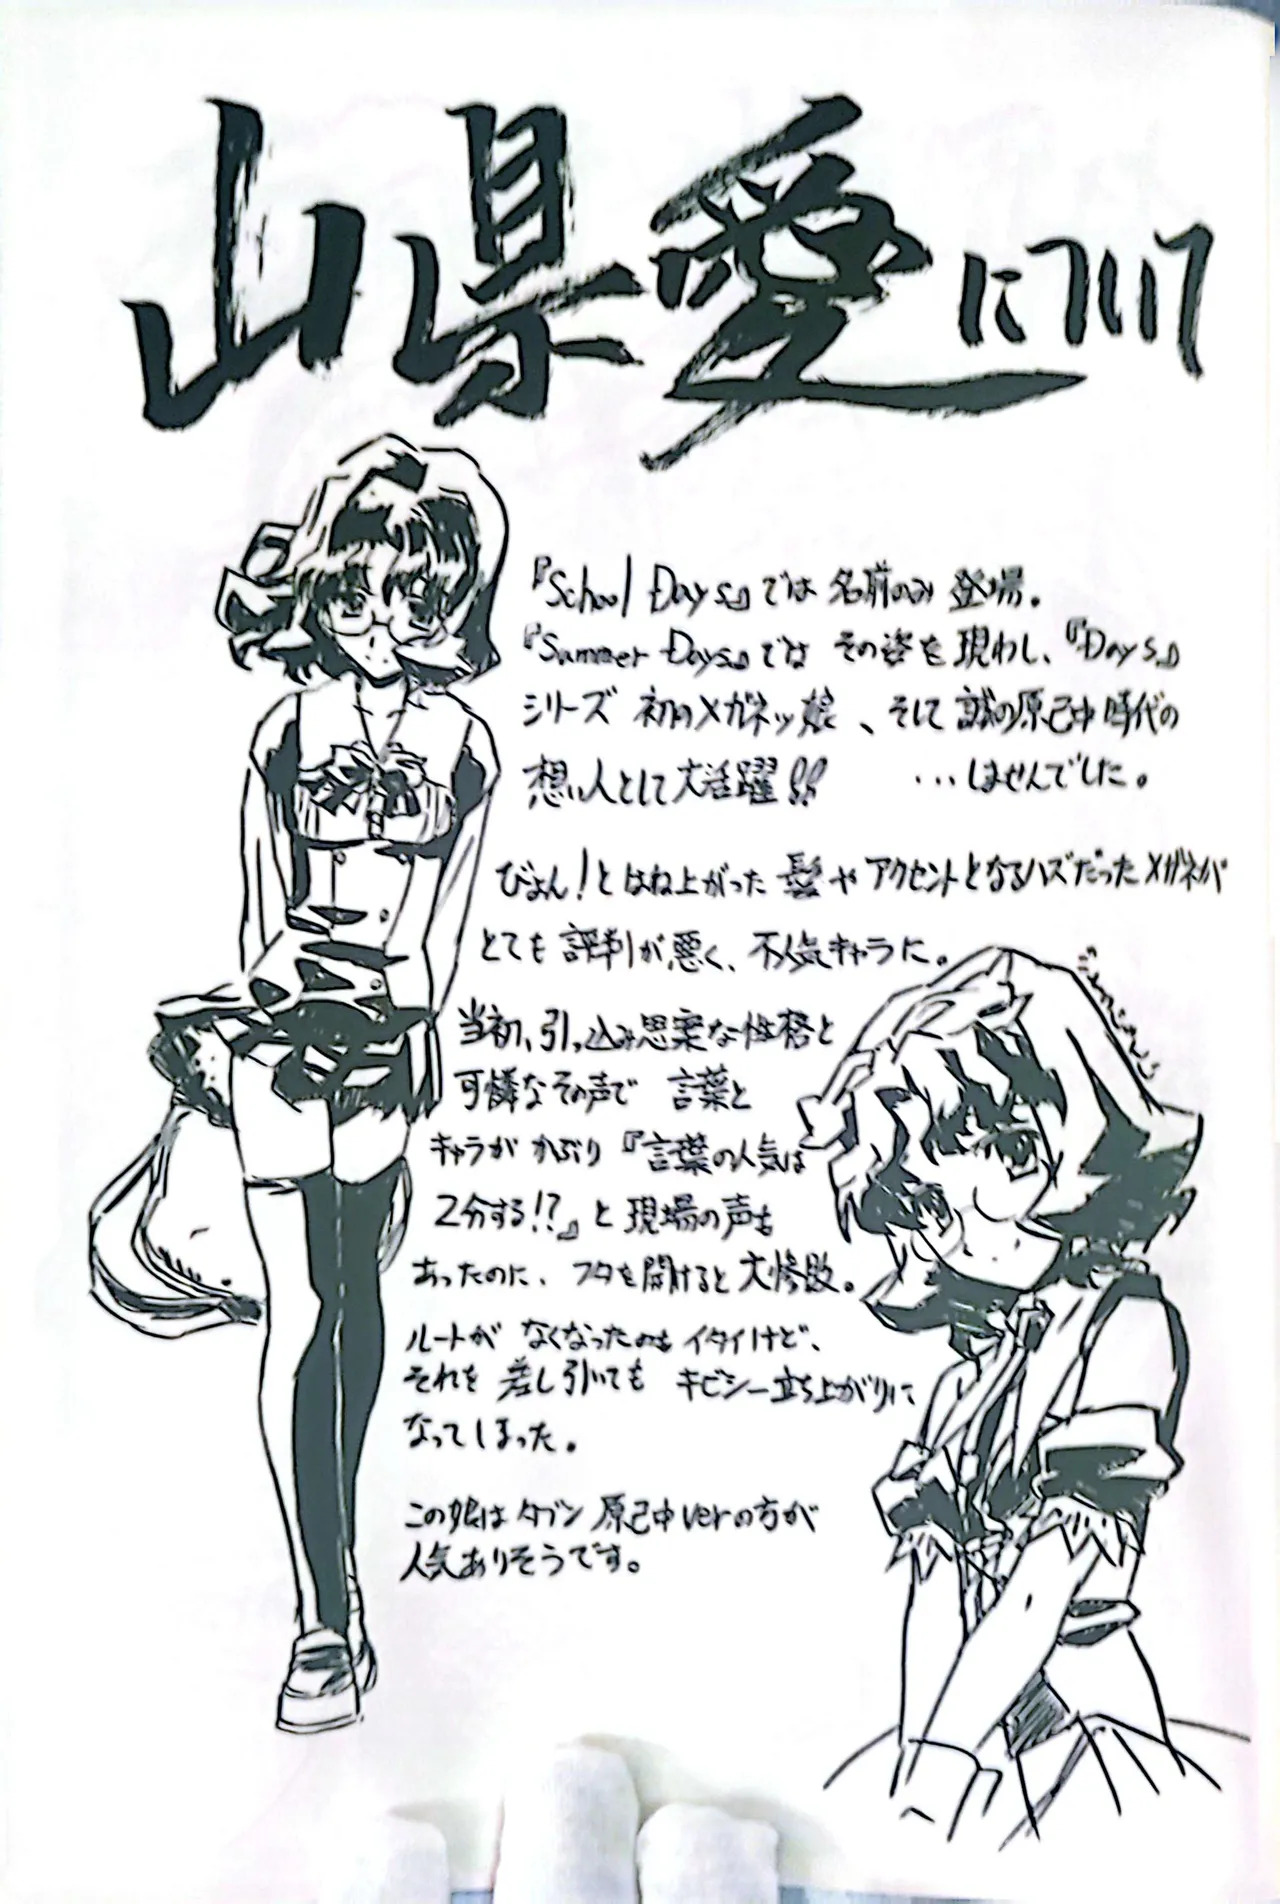 山県愛について
『School Days』では名前のみ登場。
『Summer Days』ではその姿を現わし、『Days』
シリーズ初のメガネッ娘、そして誠の原巳中時代の
想い人として大活躍!! ...しませんでした。
びよん!とはね上がった髪やアクセントとなるハズだったメガネが
とても評判が悪く、不人気キャラに。
当初、引っ込み思案な性格と
可憐なその声で 言葉と
キャラがかぶり『言葉の人気は
2分する!?』と現場の声も
あったのに、フタを開けると大惨敗。
ルートがなくなったのもイタイけど、
それを差し引いてもキビシー立ち上がりに
なってしまった。
この娘はタブン原巳中verの方が
人気ありそうです。